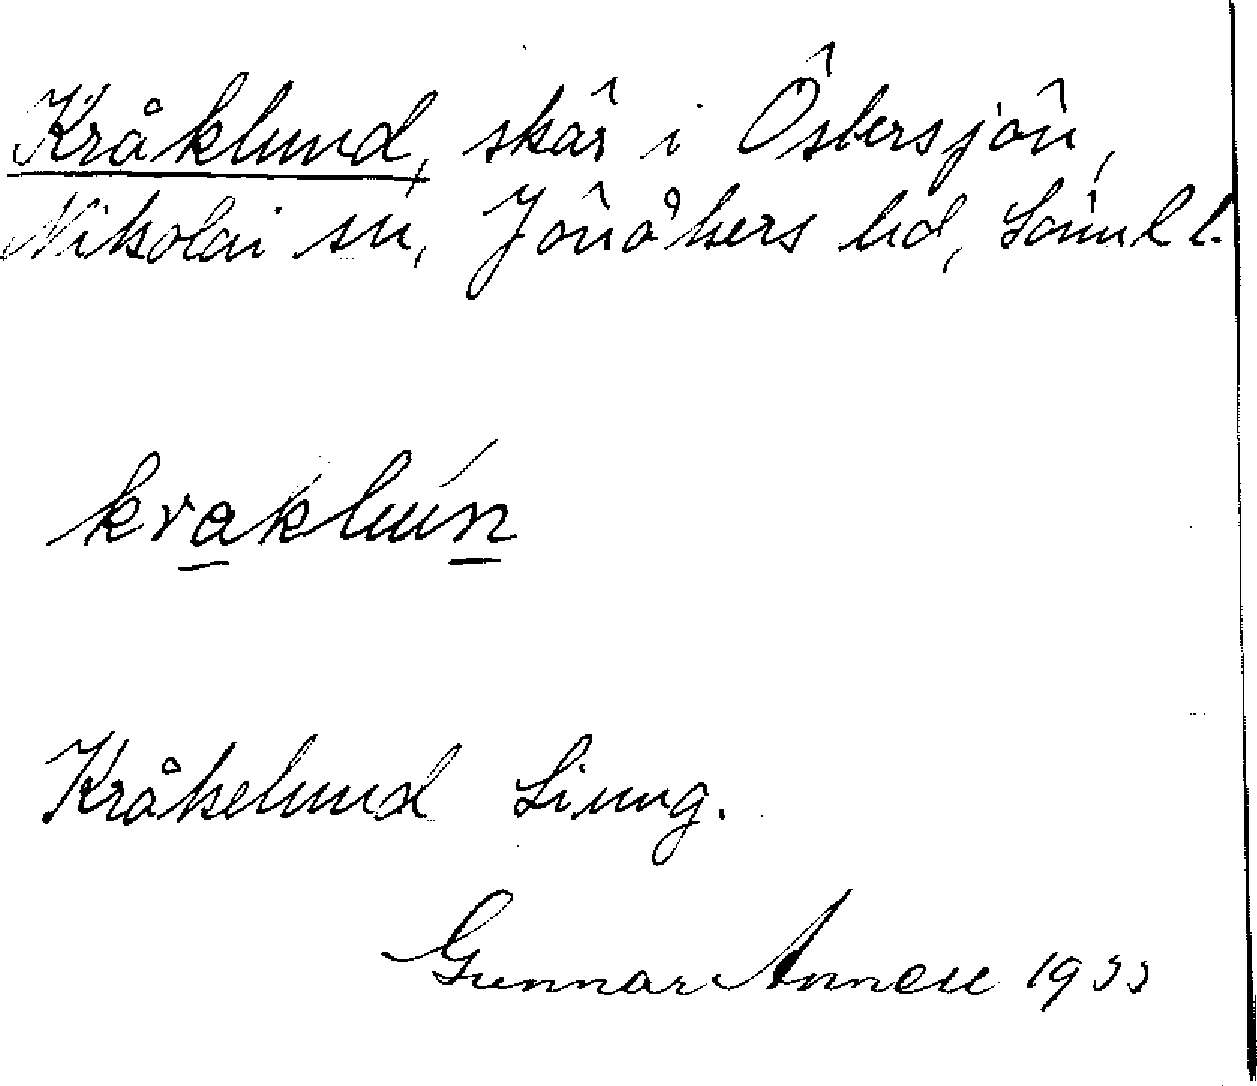 Kråklund, skär i Östersjön,
Nikolai sn, Jönåkers hd, Söml l.
kraklún
Kråkelund Ljung.
Gunnar 1933